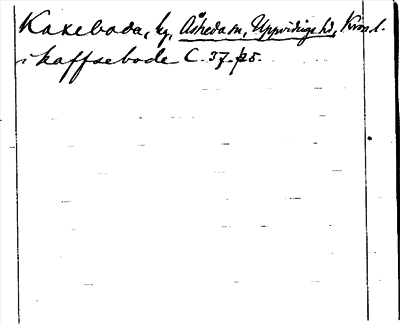 Kaxeboda, hg, Åsheda sn, Uppvidinge hd, Kron. l.
i kaffsebode C. 37. p25.